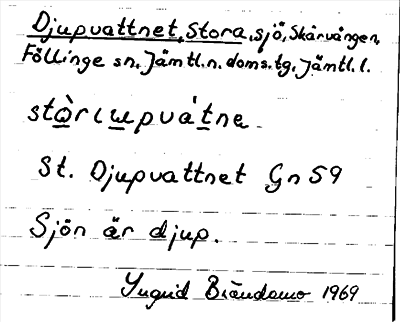 Djupvattnet, Stora, sjö, Skärvången,
Föllinge sn, Jämtl.n.doms.tg, Jämtl.l.
St. Djupvattnet Gn 59
Sjön är djup.
Yngrid Brändamo 1969